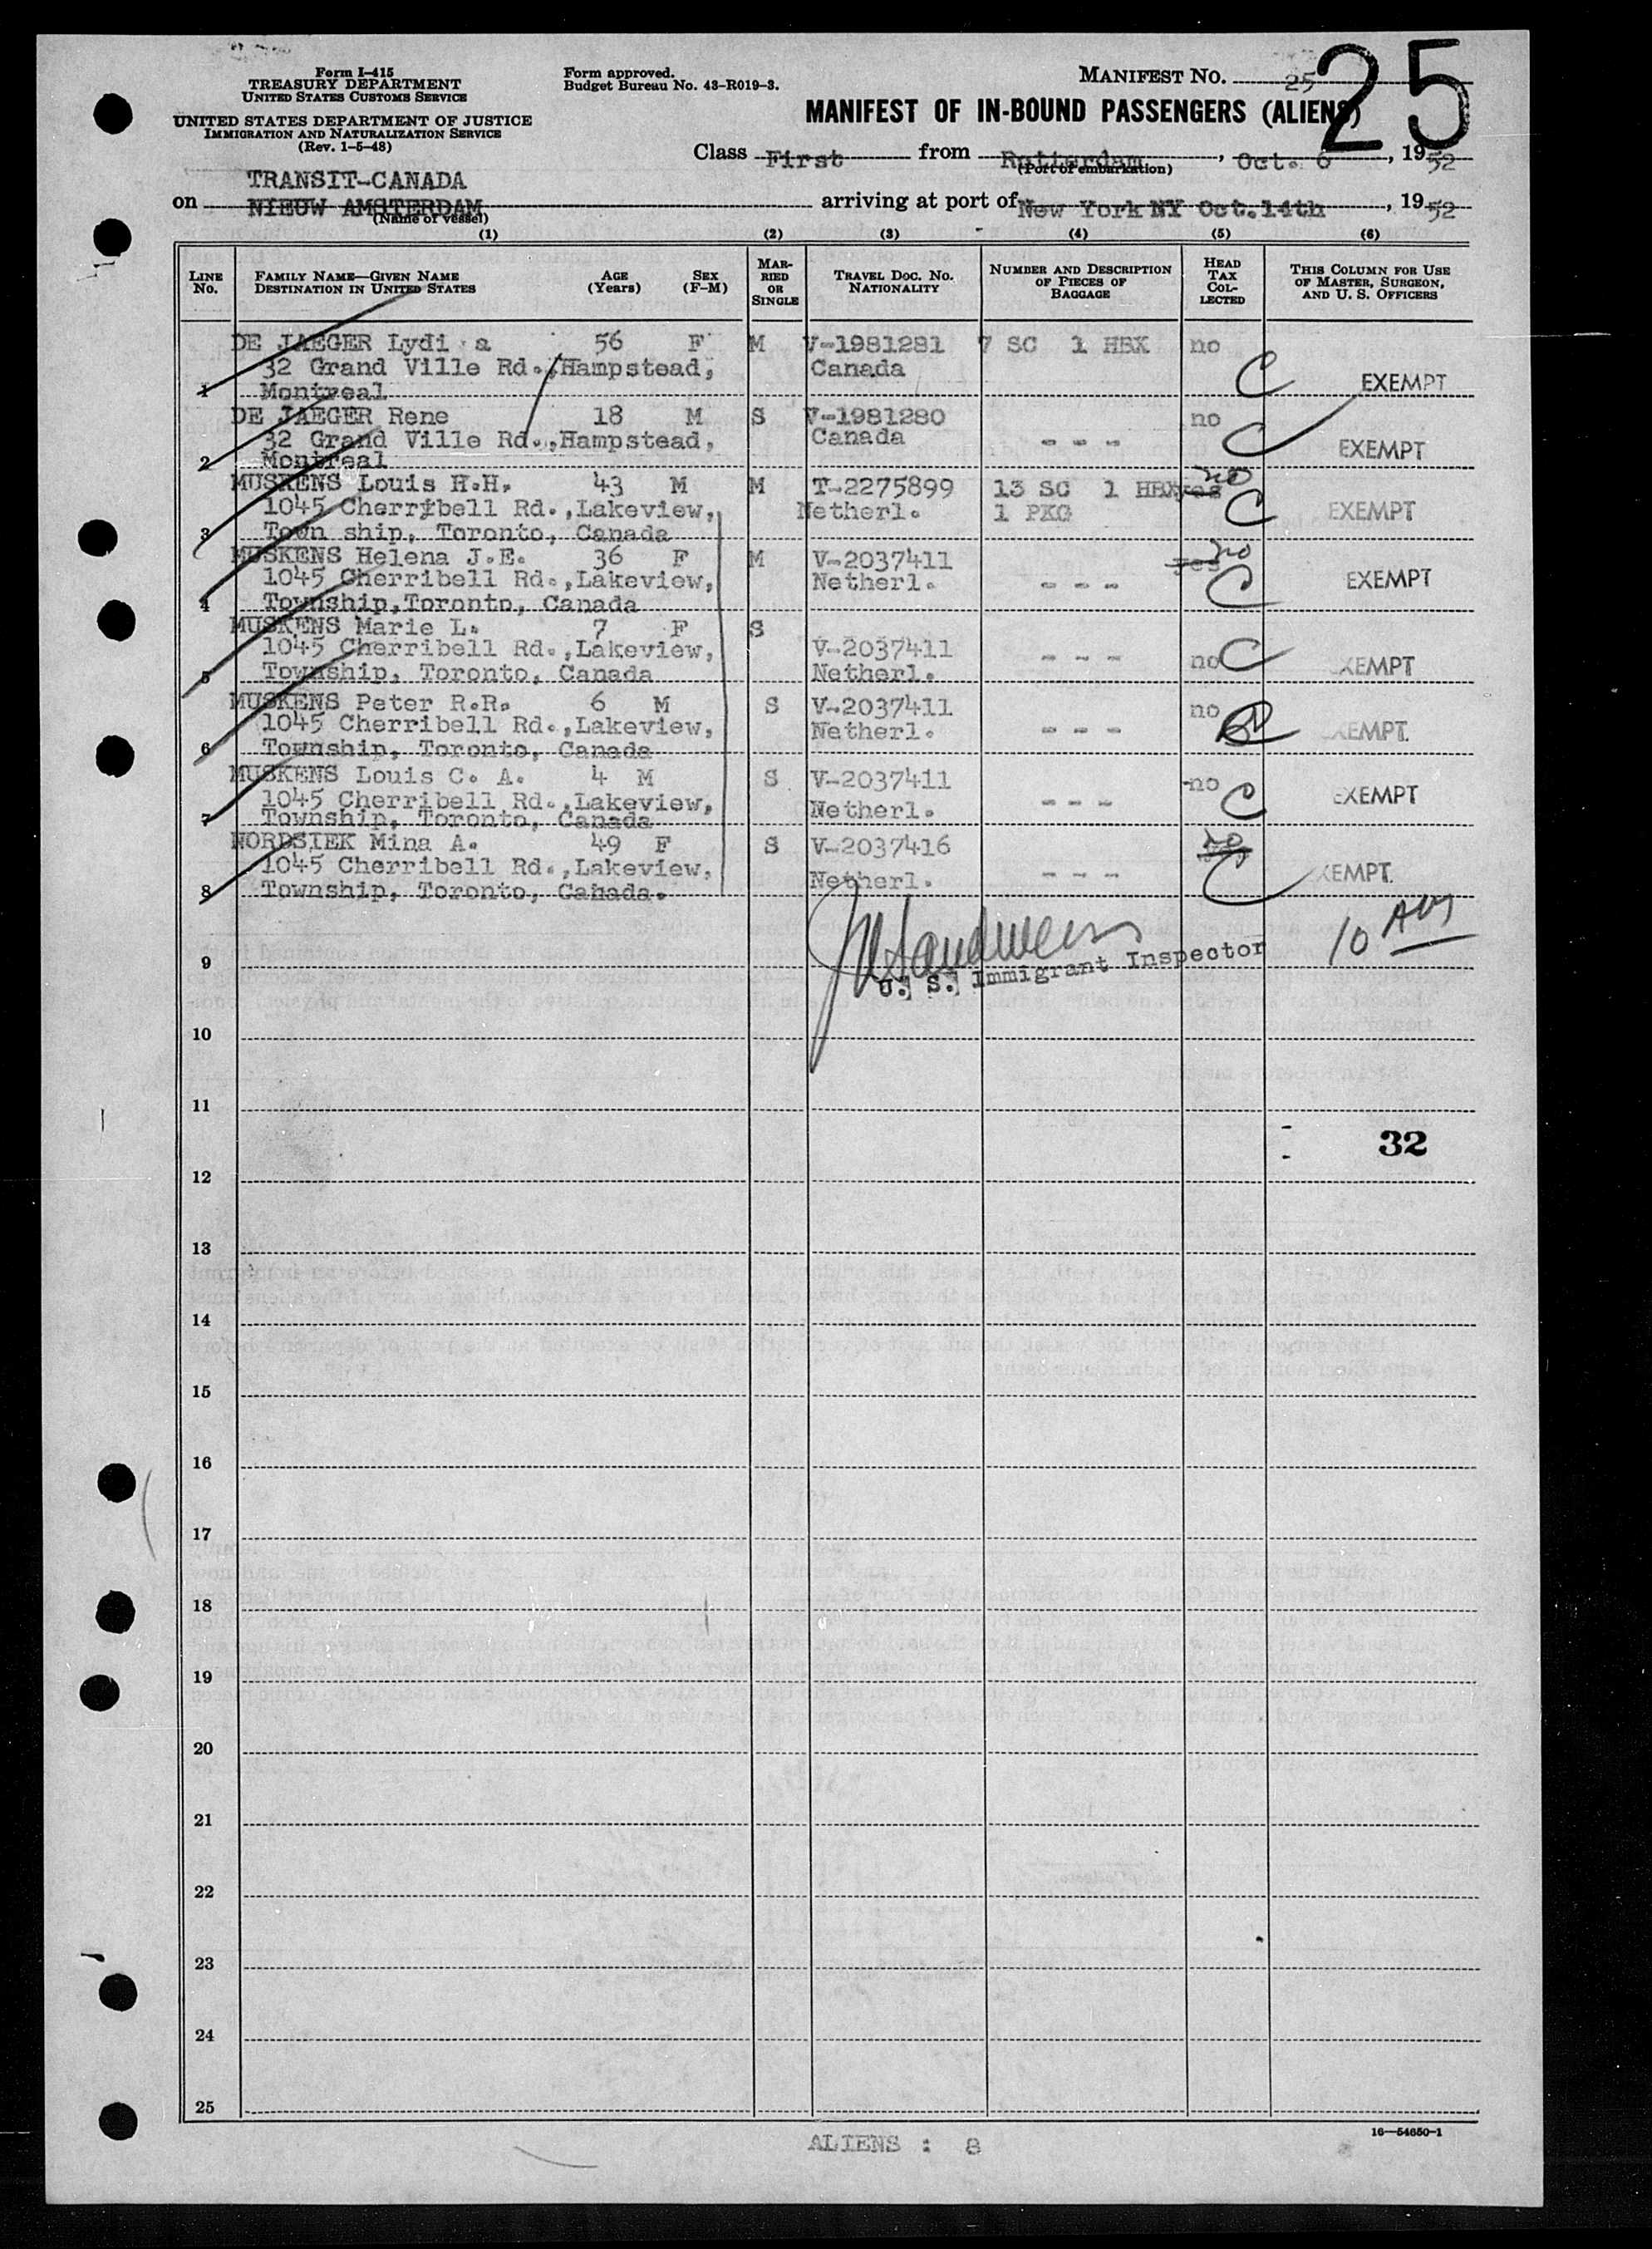 Form I-415
TREASURY DEPARTMENT
UNITED STATES CUSTOMS SERVICE
UNITED STATES DEPARTMENT OF JUSTICE
IMMIGRATION AND NATURALIZATION SERVICE
(Rev. 1-5-48)
Form approved.
Budget Bureau No. 43-R019-3.
MANIFEST NO. 25
25
MANIFEST OF IN-BOUND PASSENGERS (ALIENS)
Class First from Rotterdam, Oct. 6, 1952
(Port of embarkation)
TRANSIT-CANADA
on NIEUW AMSTERDAM arriving at port of New York NY Oct.14th, 1952
(Name of vessel)
(1) (2) (3) (4) (5) (6)
LINE No. FAMILY NAME—GIVEN NAME DESTINATION IN UNITED STATES AGE (Years) SEX (F-M) MARRIED OR SINGLE TRAVEL DOC. NO. NATIONALITY NUMBER AND DESCRIPTION OF PIECES OF BAGGAGE HEAD TAX COLLECTED THIS COLUMN FOR USE OF MASTER, SURGEON, AND U. S. OFFICERS
DE JAEGER Lydi a 56 F M V-1981281 7 SC 1 HBX no
32 Grand Ville Rd.,Hampstead, Canada C EXEMPT
1 Montreal
DE JAEGER Rene 18 M S V-1981280 no
32 Grand Ville Rd.,Hampstead, Canada - - - C EXEMPT
2 Montreal
MUSKENS Louis H.H. 43 M M T-2275899 13 SC 1 HBX yes no
1045 Cherribell Rd.,Lakeview, Netherl. 1 PKG C EXEMPT
3 Town ship, Toronto, Canada
MUSKENS Helena J.E. 36 F M V-2037411 yes no
1045 Cherribell Rd.,Lakeview, Netherl. - - - C EXEMPT
4 Township,Toronto, Canada
MUSKENS Marie L. 7 F S
1045 Cherribell Rd.,Lakeview, V-2037411 - - - no C XEMPT
5 Township, Toronto, Canada Netherl.
MUSKENS Peter R.R. 6 M S V-2037411 no
1045 Cherribell Rd.,Lakeview, Netherl. - - - XEMPT.
6 Township, Toronto, Canada
MUSKENS Louis C. A. 4 M S V-2037411 no
1045 Cherribell Rd.,Lakeview, Netherl. - - - C EXEMPT
7 Township, Toronto, Canada
NORDSIEK Mina A. 49 F S V-2037416 no
1045 Cherribell Rd.,Lakeview, Netherl. - - - C XEMPT.
8 Township, Toronto, Canada.
U. S. Immigrant Inspector
10
9
10
11
32
12
13
14
15
16
17
18
19
20
21
22
23
24
25
16—54650-1
ALIENS : 8